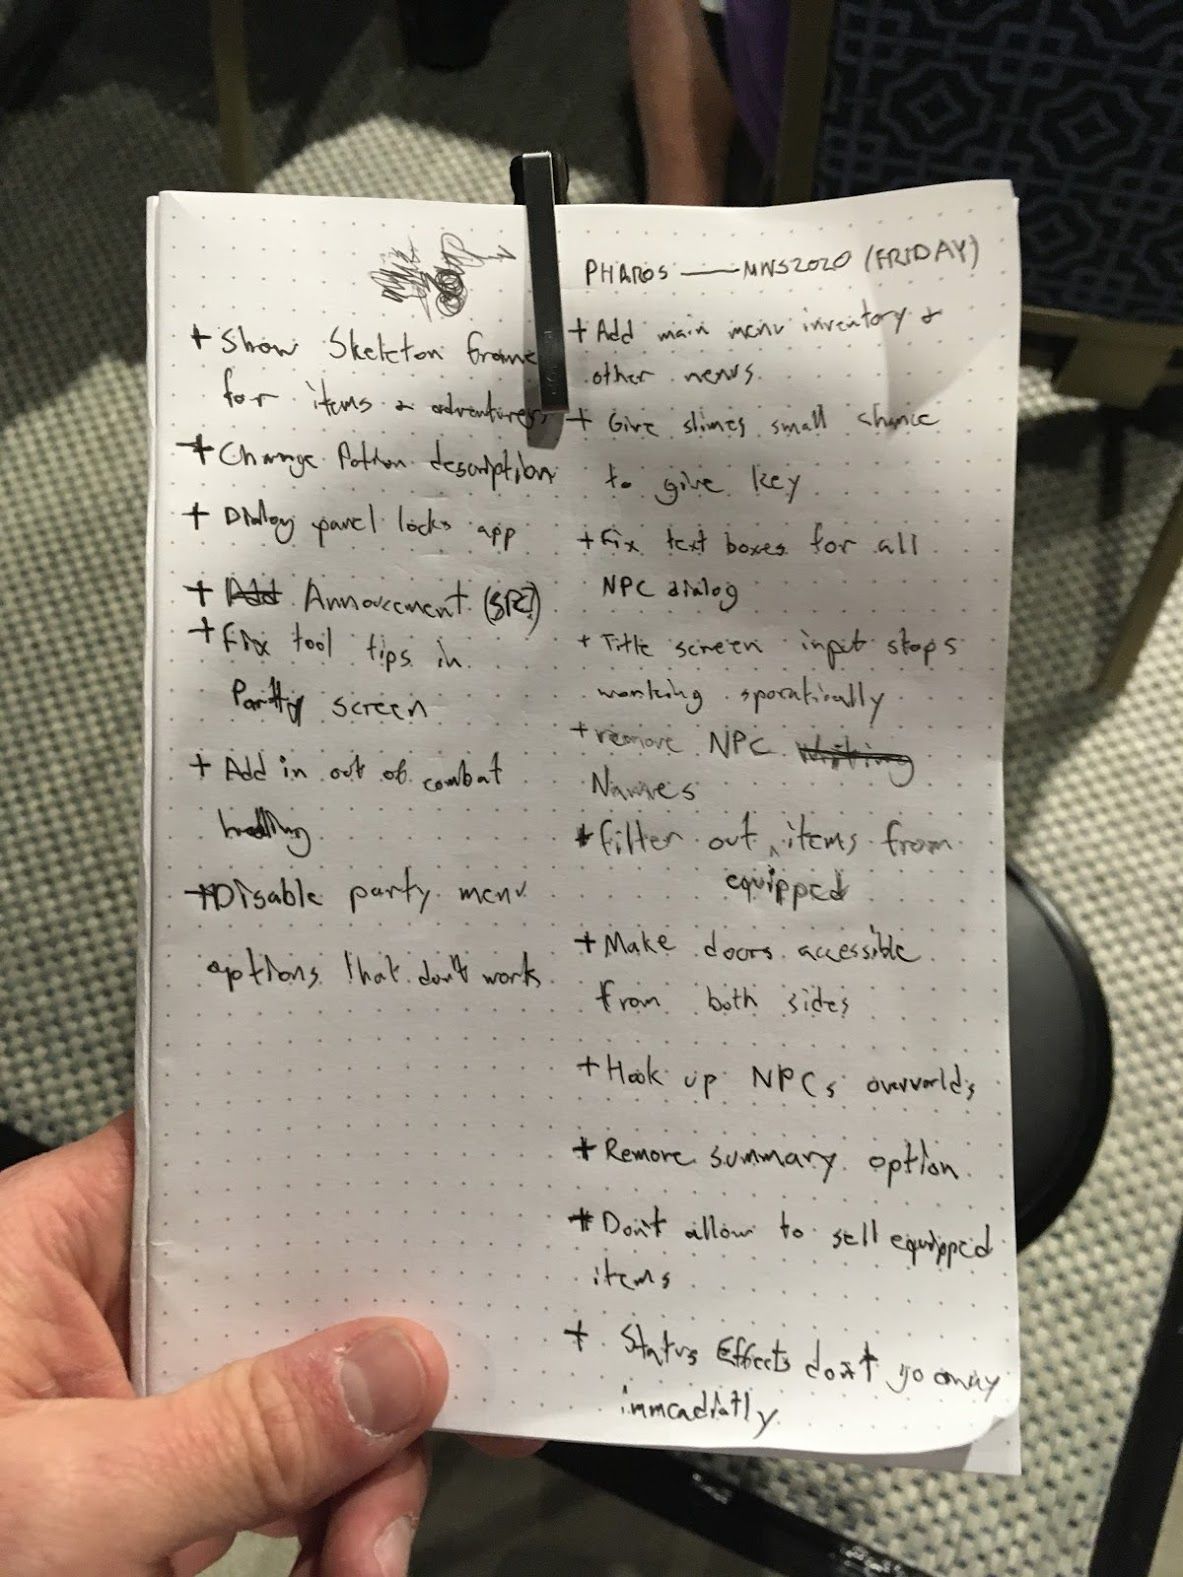 + Show Skeleton frame
for items & adventurers
+ Change Potion description
+ Dialog panel locks app
+ Add Annoucement
+ Fix tool tips in
Party screen
+ Add in out of combat
+ Disable party menu
options that don't work
PHAROS — MWS2020 (FRIDAY)
+ Add main menu inventory &
other menus.
+ Give slimes small chance
to give key
+ Fix text boxes for all
NPC dialog
+ Title screen input stops
working sporatically
+ remove NPC
Names
+ filter out ^ items from
equipped
+ Make doors accessible
from both sides
+ Hook up NPCs overworlds
+ Remove summary option
+ Don't allow to sell equipped
items
+ Status Effects don't go away
immeadiatly